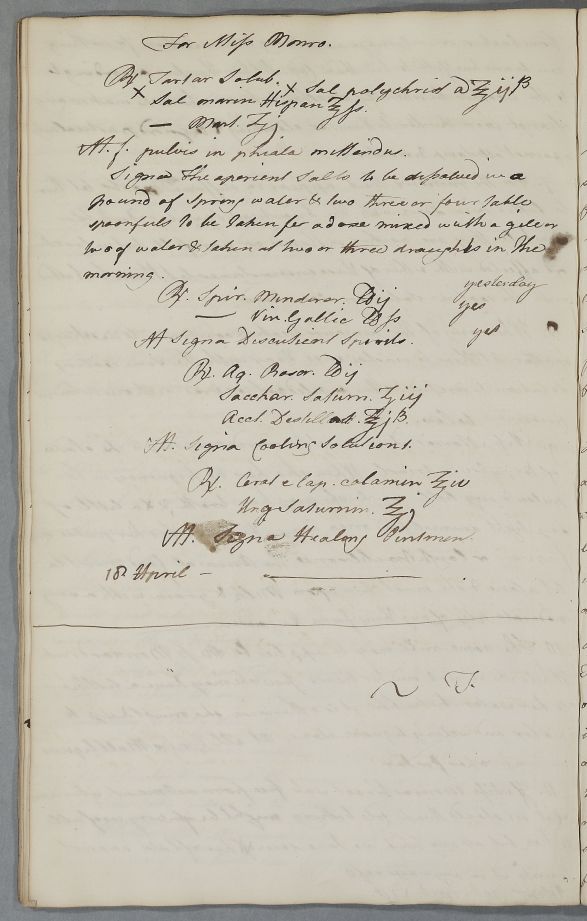 For Miss Monro.
℞ Tartar Solub. × Sal polychrist a ʒijß
× Sal marin Hispan ℥ſs.
— Mart. ʒj
M. f. pulvis in phiala mittendus.
Signa The aperient Salts to be dissolved in a
pound of spring water & two three or four table
spoonfuls to be taken for a dose mixed with a gill or
two of water & taken at two or three draughts in the
morning.
yesterday
℞. Spir. Minderer. ℔ij yes
— Vin. Gallic ℔ſs
M Signa Discutient Spirits. yes
℞. Aq. Rosar. ℔ij
Sacchar. Saturn. ʒiij
Acet. Destillat. ℥jß.
M. Signa Cooling Solutions.
℞. Cerat e lap. calamin ℥iv
Ung Saturnin. ℥j
M. Signa Healing Ointmen.
18 April —